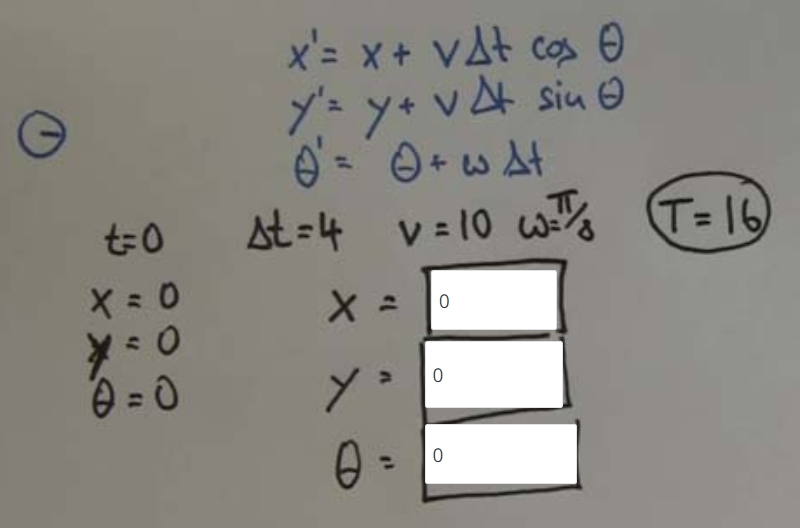 x' = x + v Δt cos θ
y' = y + v Δt sin θ
θ' = θ + ω Δt
t=0 Δt=4 v=10 ω=π/8 T=16
x = 0 x = 0
y = 0 y = 0
θ = 0 θ = 0